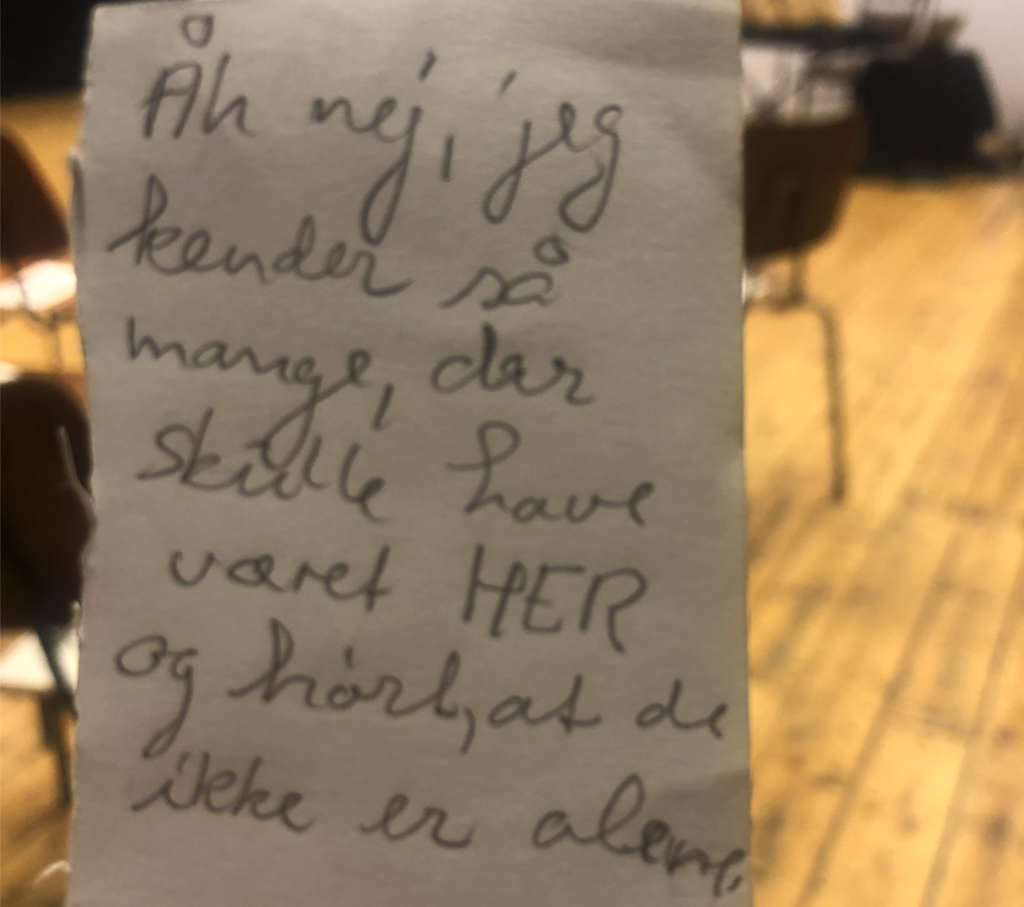 Åh nej, jeg
kender så
mange, der
skulle have
været HER
og hørt, at de
ikke er alene.